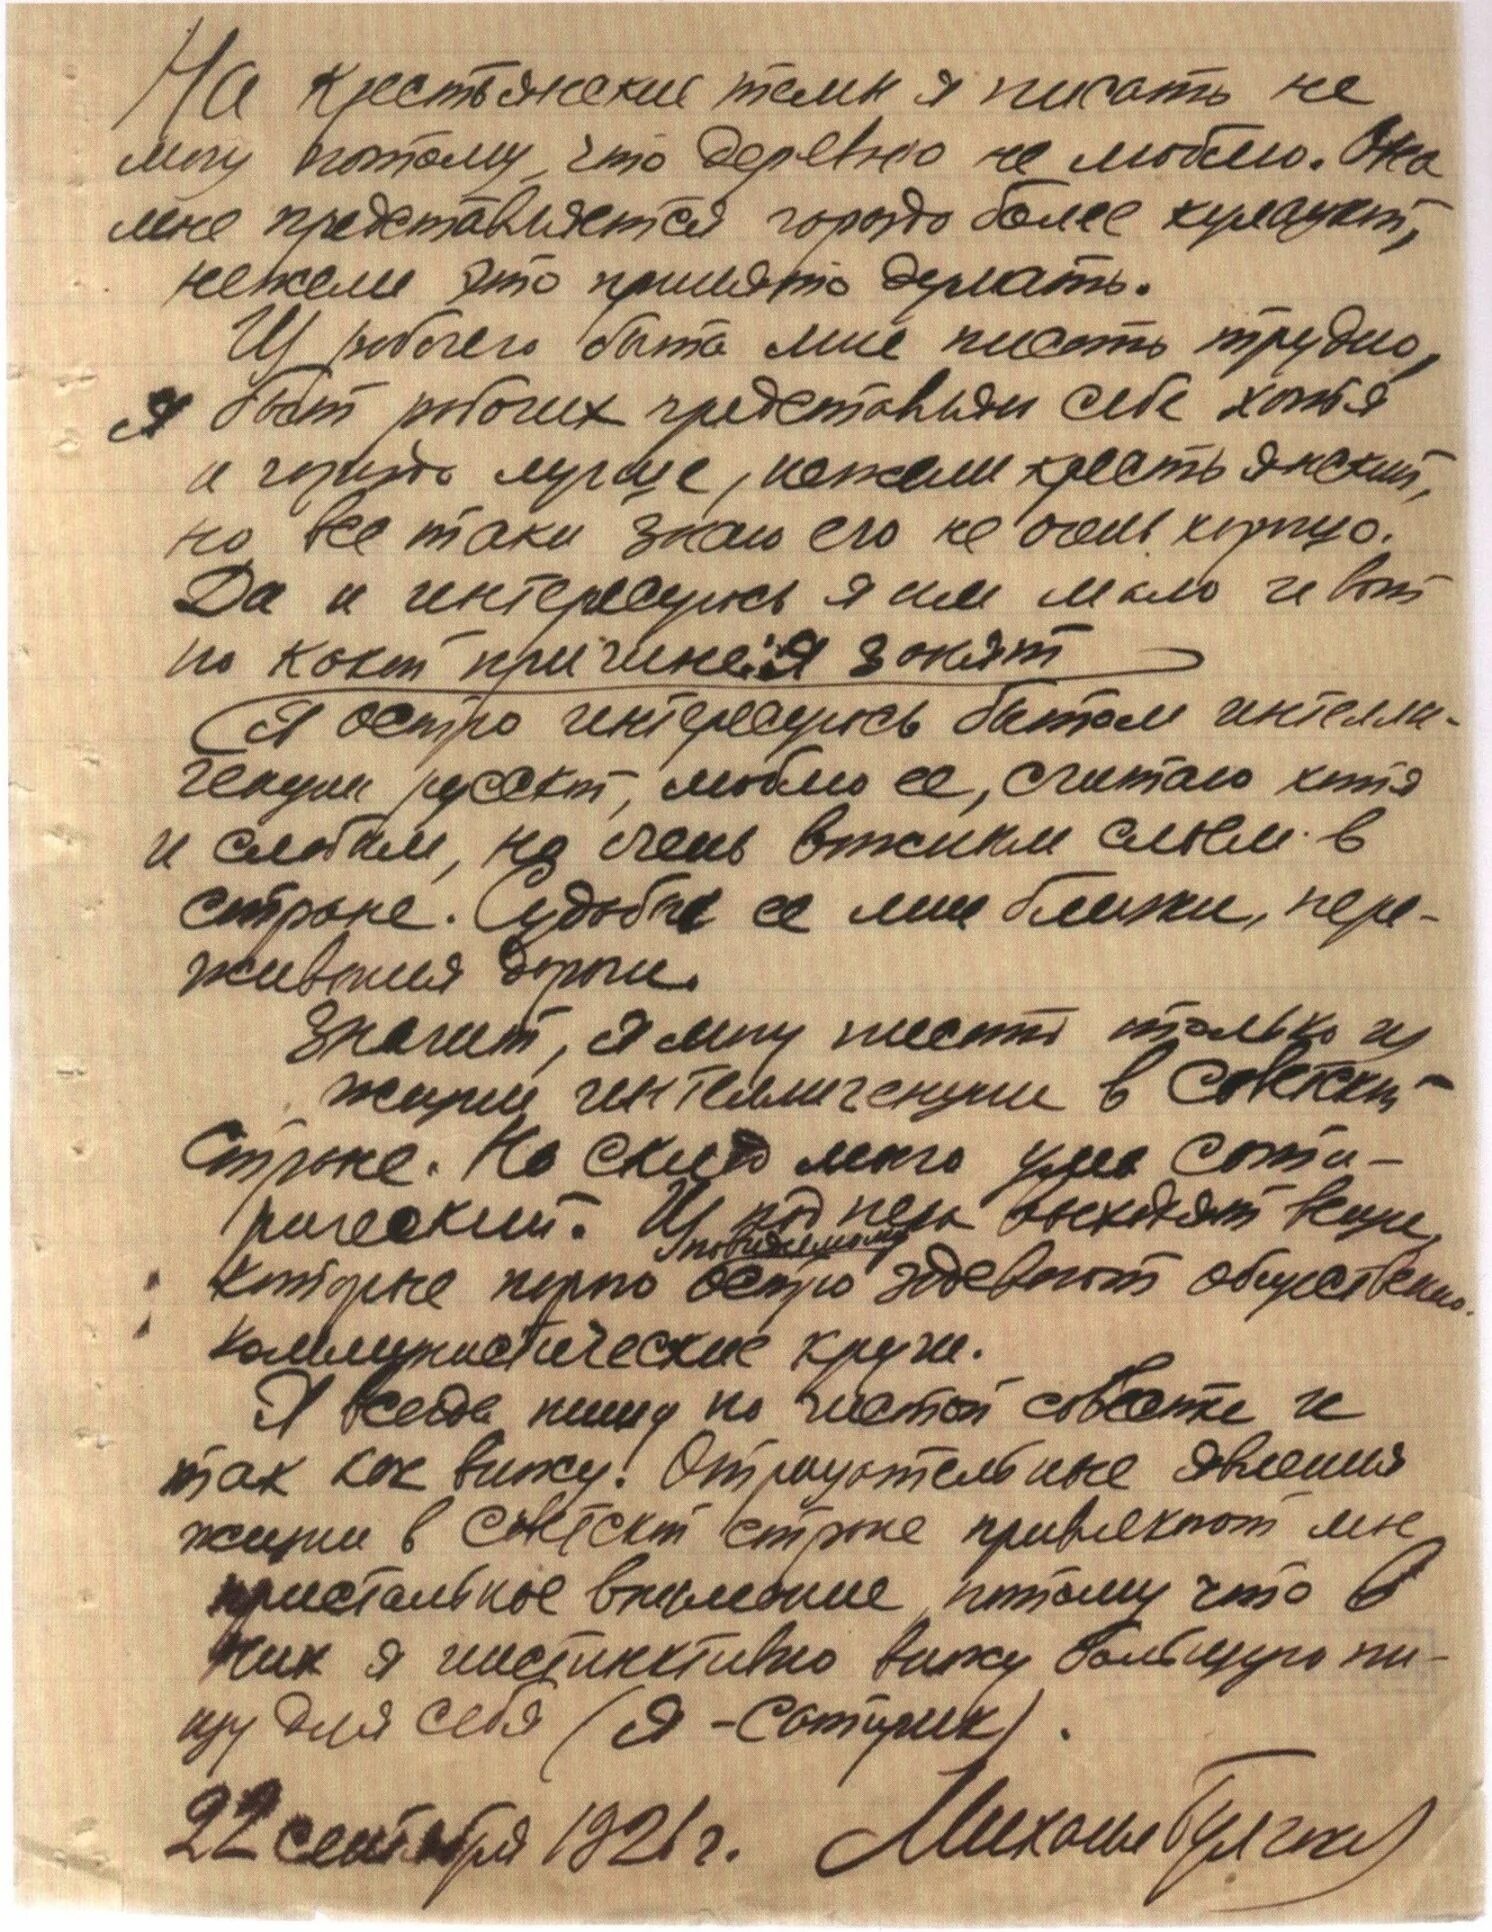 На крестьянские темы я писать не
могу потому, что деревню не люблю. Она
мне представляется гораздо более кулацкой,
нежели это принято думать.
Из рабочего быта мне писать трудно,
я быт рабочих представляю себе хотя
и гораздо лучше, нежели крестьянский,
но все таки знаю его не очень хорошо.
Да и интересуюсь я им мало и вот
по какой причине: я занят
Я остро интересуюсь бытом интелли-
генции русской, люблю ее, считаю хотя
и слабым, но очень важным слоем в
стране. Судьбы ее мне близки, пере-
живания дороги.
Значит, я могу писать только из
жизни интеллигенции в советской
стране. Но склад моего ума сати-
рический. Из под пера выходят вещи,
повидимому
которые порою остро задевают общественно-
коммунистические круги.
Я всегда пишу по чистой совести и
так как вижу! Отрицательные явления
жизни в советской стране привлекают мое
пристальное внимание, потому что в
них я инстинктивно вижу большую пи-
щу для себя (я – сатирик).
22 сентября 1926 г. Михаил Булгаков